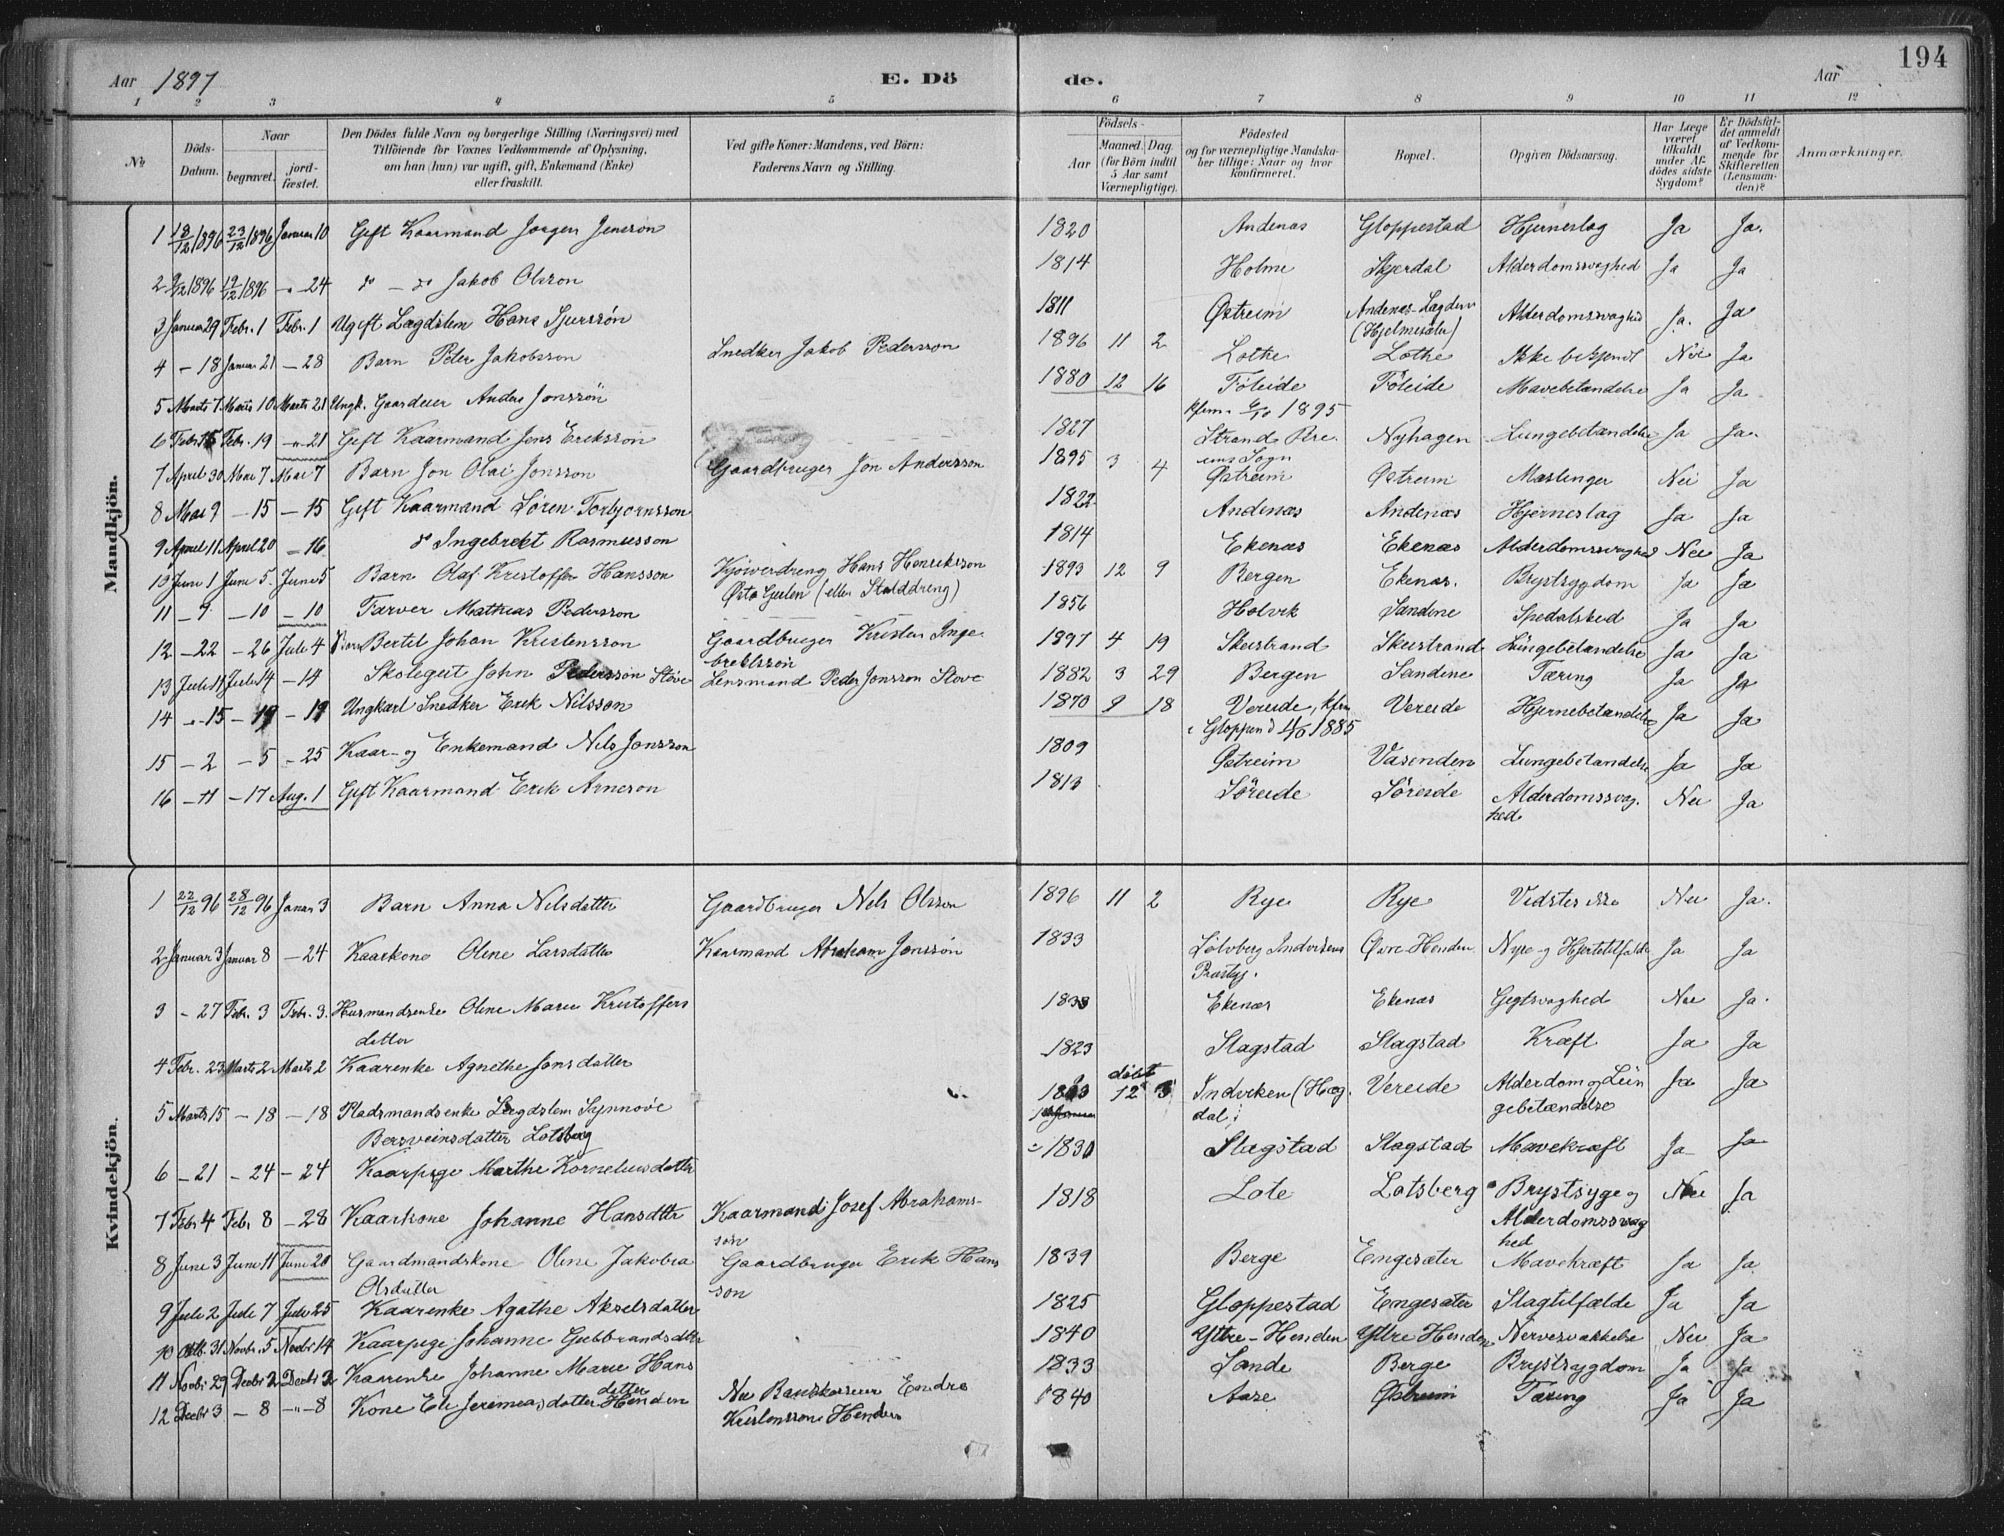 194
Aar 1897 E. Dö de. Aar
1 2 3 4 5 6 7 8 9 10 11 12
No. Döds-Datum. Naar begravet. jordfæstet. Den Dödes fulde Navn og borgerlige Stilling (Næringsvei) med Tilföiende for Voxnes Vedkommende af Oplysning, om han (hun) var ugift, gift, Enkemand (Enke) eller fraskilt. Ved gifte Koner: Mandens, ved Börn: Faderens Navn og Stilling. Födsels- Aar Maaned. Dag. (for Börn indtil 5 Aar samt Værnepligtige). Födested og for værnepligtige Mandskaber tillige: Naar og hvor konfirmeret. Bopæl. Opgiven Dödsaarsag. Har Læge været tilkaldt under Afdödes sidste Sygdom? Er Dödsfaldet anmeldt af Vedkommende for Skifteretten (Lensmanden)? Anmærkninger.
Mandkjön.
1 18/12 1896 23/12 1896 Januar 10 Gift Kaarmand Jørgen Jensson 1820 Andenæs Gloppestad Hjerneslag Ja Ja.
2 9/12 1896 19/12 1896 -"-24 do - do Jakob Olsson 1814 Holme Skjerdal Alderdomssvaghed Ja Ja
3 Januar 29 Febr. 1 Febr. 1 Ugift Lægdslem Hans Sjurssön 1811 Østreim Andenæs-Lægden (Hjelmesæter) Alderdomssvaghed Ja. Ja
4 - 18 Januar 21 - 28 Barn Peter Jakobsson Snedker Jakob Pedersson 1896 11 2 Lothe Lothe Ikke bekjendt Nei Ja
5 Marts 7 Marts 10 Marts 21 Ungk. Gaardeier Anders Jonssön 1880 12 16 Föleide Föleide Mavebetændelse Ja Ja
kfrm. 6/10 1895
6 Febr. 15 Febr. 19 -"-21 Gift Kaarmand Jens Eriksson 1827 Strand Bre- Nyhagen Lungebetændelse Ja Ja.
ems Sogn
7 April 30 Mai 7 Mai 7 Barn Jon Olai Jonsson Gaardbruger Jon Andersson 1895 3 4 Østreim Østreim Mæslinger Nei Ja
8 Mai 9 - 15 - 15 Gift Kaarmand Sören Torbjørnsson 1822 Andenæs Andenæs Hjerneslag Ja Ja
9 April 11 April 20 - 16 do Ingebrekt Rasmusson 1814 Ekenæs Ekenæs Alderdomssvaghed Nei Ja
10 Juni 1 Juni 5. Juni 5 Barn Olaf Kristoffer Hansson Hans Henriksson 1893 12 9 Bergen Ekenæs. Brystsygdom Ja Ja
(eller Stalddreng)
11 - 9 - 10 - 10 Farver Mathias Pedersson 1856 Holvik Sandene Spedalsked Ja Ja
12 - 22 - 26 Juli 4 Barn Bertel Johan Kristensson Gaardbruger Kristen Inge 1897 4 19 Skeistrand Skeistrand Lungebetændelse Ja Ja
brektsson
13 Juli 11 Juli 14 - 14 Skolegut John Pedersson Støve Lensmand Peder Jonsson Støve 1882 3 29 Bergen Sandene Tæring Ja Ja
14 -"- 15 - 19 - 19 Ungkarl Snedker Erik Nilsson 1870 9 18 Vereide, kfrm Vereide Hjernebetændelse Ja Ja
i Gloppen d 1885
15 - 2 - 5 - 25 Kaar- og Enkemand Nils Jonsson 1809 Østreim Vasenden Lungebetændelse Ja Ja
16 - 11 - 17 Aug. 1 Gift Kaarmand Erik Arneson 1813 Söreide Söreide Alderdomssvag- Nei Ja
hed
Kvindekjön.
1 22/12 96 28/12 96 Januar 3 Barn Anna Nilsdatter Gaardbruger Nils Olsson 1896 11 2 Rye Rye Vides ikke Nei Ja.
2 Januar 3 Januar 8 - 24 Kaarkone Oline Larsdatter Kaarmand Abraham Jonssön 1833 Indvikens Øvre-Henden Nyre- og Hjertetilfælde Ja Ja
Præstgj.
3 - 27 Febr. 3 Febr. 3. Husmandsenke Oline Marie Kristoffers 1838 Ekenæs Ekenæs Gigtsvaghed Nei Ja.
datter
4 Febr. 23 Marts 2 Marts 2 Kaarenke Agnethe Jonsdatter 1823 Slagstad Slagstad Kræft Ja Ja
5 Marts 15 - 18 - 18 Pladsmandsenke Lægdslem Synnöve döbt 12 3 Indviken (Hæg- Vereide Alderdom og Lun Ja Ja
Bersveinsdatter Lotsberg dal; gebetændelse
6 - 21 - 24 - 24 Kaarpige Marthe Korneliusdatter 1830 Slagstad Slagstad Mavekræft Ja Ja
7 Febr 4 Febr 8 - 28 Kaarkone Johanne Hansdttr Kaarmand Josef Abrahams- 1818 Lote Lotsberg Brystsyge og Nei Ja
son Alderdomssvag
hed
8 Juni 3 Juni 11 Juni 20 Gaardmandskone Oline Jakobia Gaardbruger Erik Hans 1839 Berge Eimgesæter Mavekræft Ja Ja
Olsdatter son
9 Juli 2 Juli 7 Juli 25 Kaarenke Agathe Akselsdatter 1825 Gloppestad Eimgesæter Slagtilfælde Ja Ja
10 Oktb. 31 Novbr. 5 Novbr 14 Kaarpige Johanne Gubbrandsdttr 1840 Yttre-Henden Yttre Henden Nervesvækkelse Nei Ja
11 Novbr 29 Decbr 2 Decbr 2 Kaarenke Johanne Marie Hans 1833 Sande Berge Brystsygdom Ja Ja
datter
12 Decbr 3 - 8 -"-8 Kone Eli Jeremeasdatter Henden Bankkasserer Endre 1840 Aase Østreim Tæring Ja Ja
Kristensson Henden